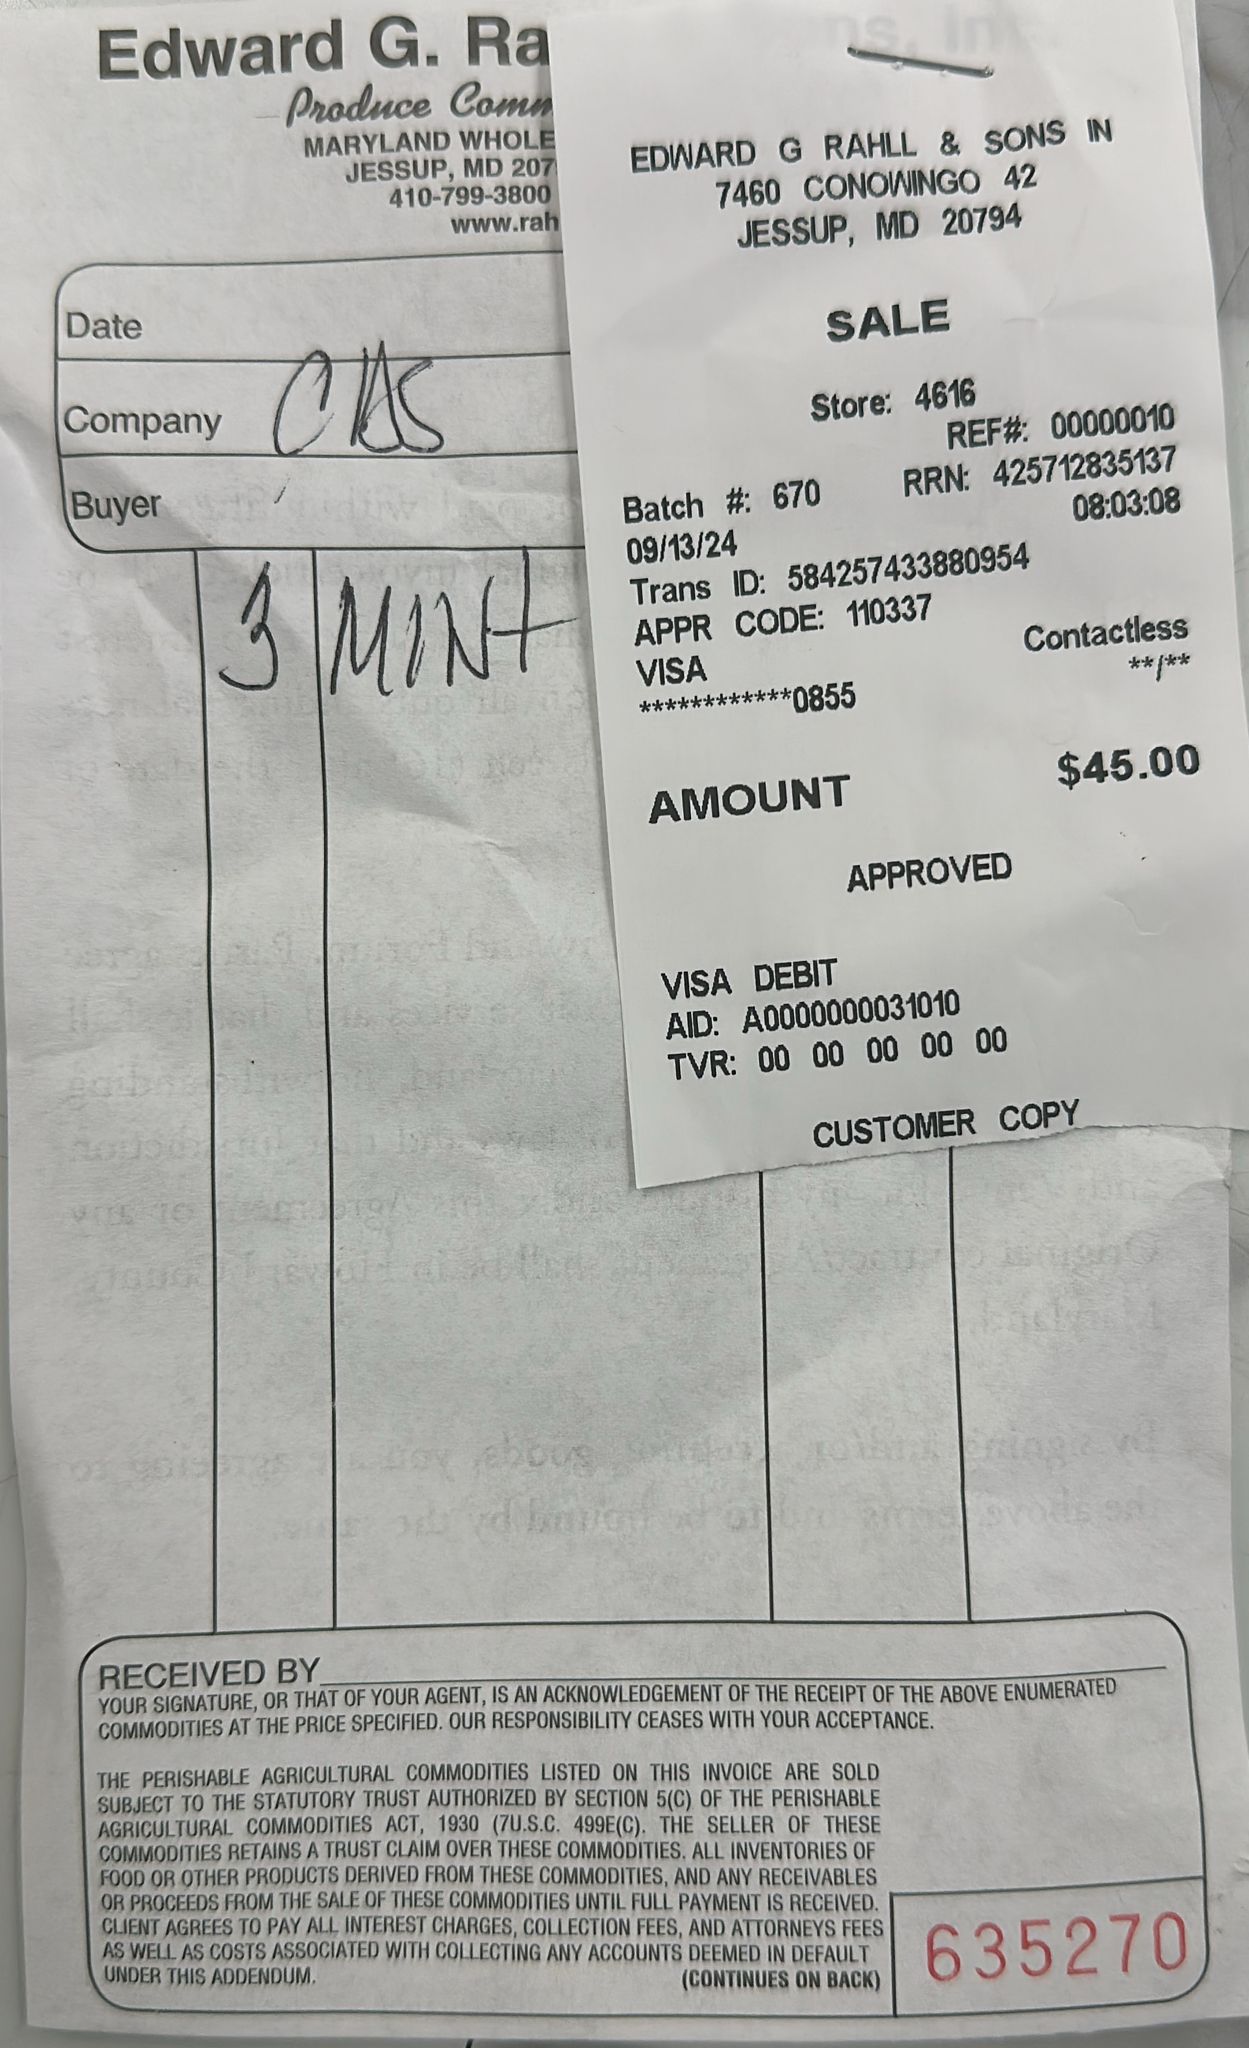 Edward G. Ra
Produce Comm
MARYLAND WHOLE
JESSUP, MD 207
410-799-3800
www.rah
Date
Company
Buyer
3 MINT
EDWARD G RAHLL & SONS IN
7460 CONOWINGO 42
JESSUP, MD 20794
SALE
Store: 4616
REF#: 00000010
Batch #: 670 RRN: 425712835137
09/13/24 08:03:08
Trans ID: 584257433880954
APPR CODE: 110337
VISA Contactless
************0855 **/**
AMOUNT $45.00
APPROVED
VISA DEBIT
AID: A0000000031010
TVR: 00 00 00 00 00
CUSTOMER COPY
RECEIVED BY
YOUR SIGNATURE, OR THAT OF YOUR AGENT, IS AN ACKNOWLEDGEMENT OF THE RECEIPT OF THE ABOVE ENUMERATED
COMMODITIES AT THE PRICE SPECIFIED. OUR RESPONSIBILITY CEASES WITH YOUR ACCEPTANCE.
THE PERISHABLE AGRICULTURAL COMMODITIES LISTED ON THIS INVOICE ARE SOLD
SUBJECT TO THE STATUTORY TRUST AUTHORIZED BY SECTION 5(C) OF THE PERISHABLE
AGRICULTURAL COMMODITIES ACT, 1930 (7U.S.C. 499E(C). THE SELLER OF THESE
COMMODITIES RETAINS A TRUST CLAIM OVER THESE COMMODITIES. ALL INVENTORIES OF
FOOD OR OTHER PRODUCTS DERIVED FROM THESE COMMODITIES, AND ANY RECEIVABLES
OR PROCEEDS FROM THE SALE OF THESE COMMODITIES UNTIL FULL PAYMENT IS RECEIVED.
CLIENT AGREES TO PAY ALL INTEREST CHARGES, COLLECTION FEES, AND ATTORNEYS FEES
AS WELL AS COSTS ASSOCIATED WITH COLLECTING ANY ACCOUNTS DEEMED IN DEFAULT
UNDER THIS ADDENDUM. (CONTINUES ON BACK)
635270